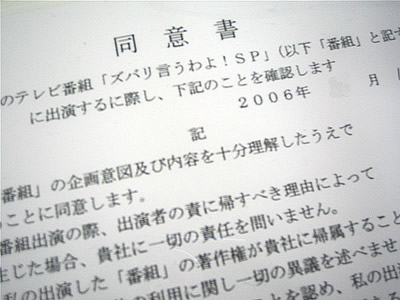 同意書
のテレビ番組「ズバリ言うわよ！SP」（以下「番組」と記す
に出演するに際し、下記のことを確認します
2006年 月
記
番組」の企画意図及び内容を十分理解したうえで
のことに同意します。
番組出演の際、出演者の責に帰すべき理由によって
生じた場合、貴社に一切の責任を問いません。
私の出演した「番組」の著作権が貴社に帰属すること
の利用に関し一切の異議を述べませ
ことを認め、私の出